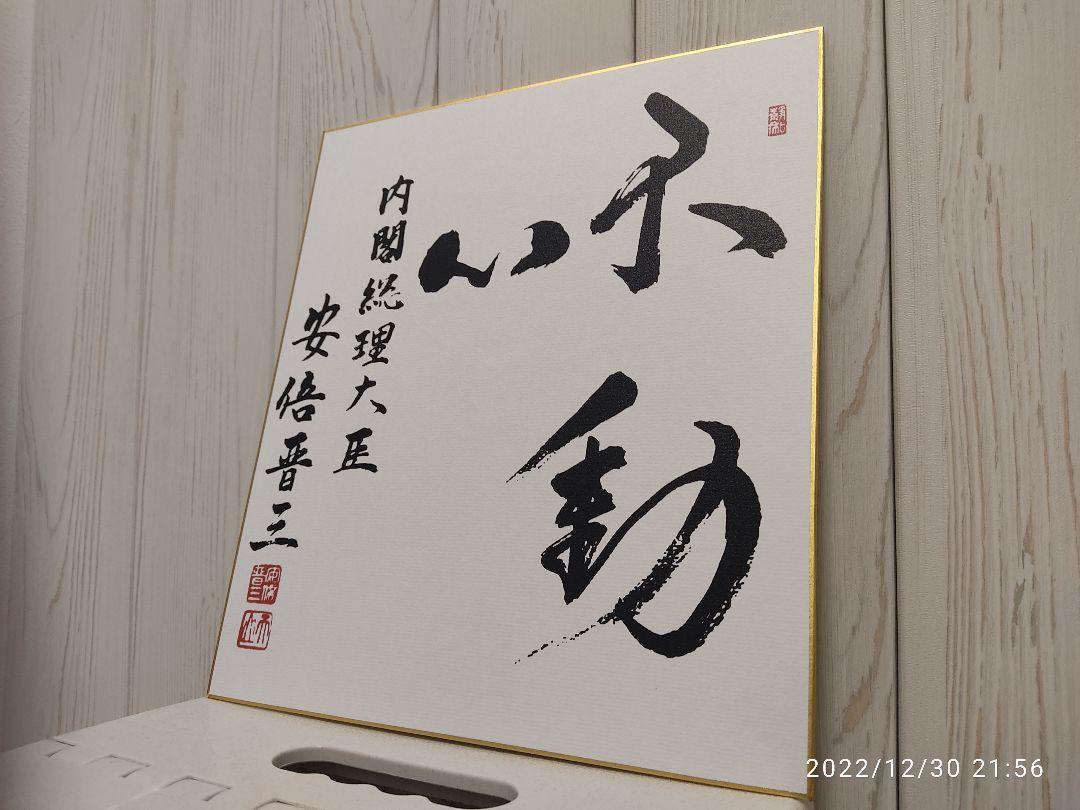 不動
心
内閣総理大臣
安倍晋三
安倍晋三
2022/12/30 21:56